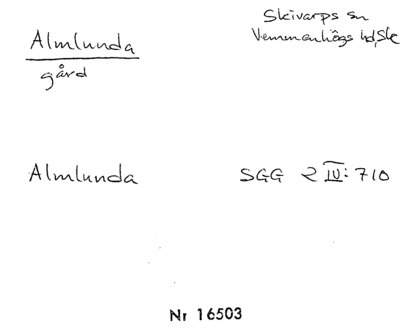 Almlunda
gård
Skivarps sn
Vemmenhögs hd, Sk
Almlunda
SGG 2 IV: 710
Nr 16503